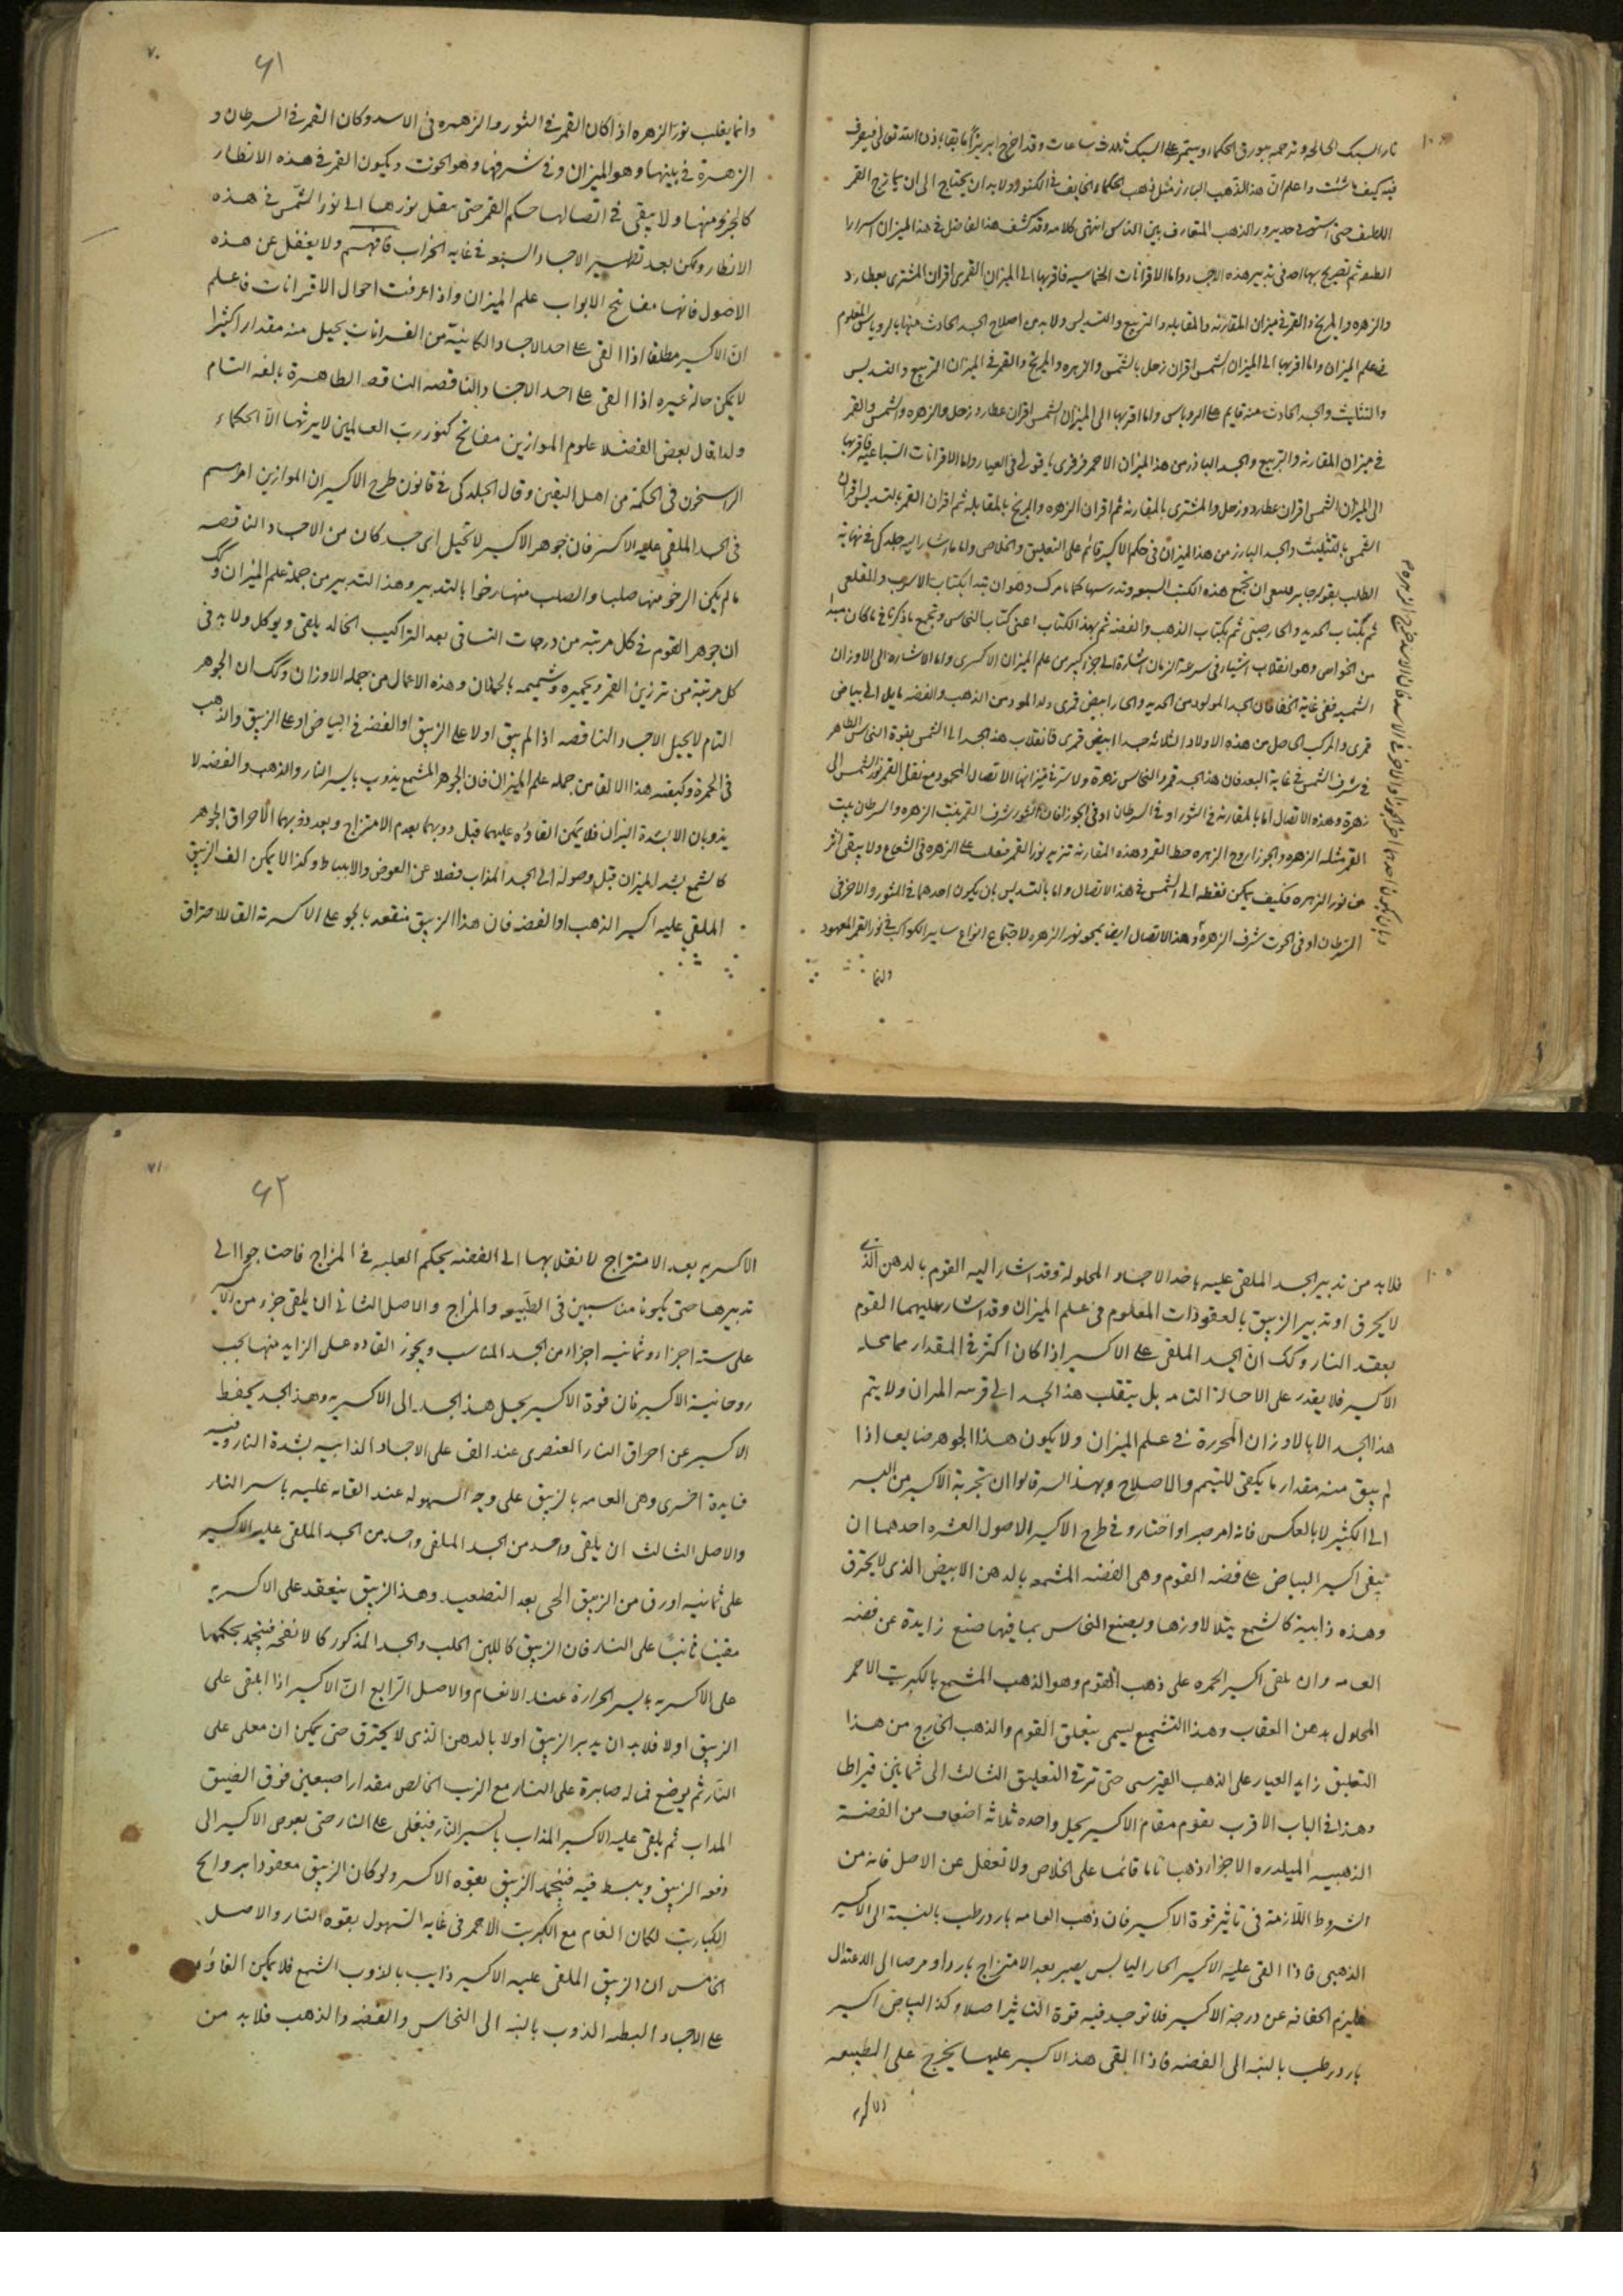 نار السبك الحالي وترحمه ببورق الحكماء ويستمر على السبك ثلاث ساعات وقد اخرج ابريزا باذن الله تعالى فيصرف
فيه كيف شئت واعلم ان هذا الذهب البارز مثل ذهب الحكماء في الكنوز ولا بد ان يحتاج الى ان يمازج القمر
اللطيف حتى الذهب المتعارف بين الناس انتهى كلامه وقد كشف هذا الفاضل في هذا الميزان اسرارا
ثم تصريح في تدبير هذه الاجساد واما الاقرانات الخماسيه فاقربها الى الميزان القمرى اقران المشترى بعطارد
والزهره والمريخ والقمر في ميزان المقارنه والمقابله والتربيع والتسديس ولا بد من اصلاح الجسد الحادث منها بالروباس المعلوم
في علم الميزان واما اقربها الى الميزان الشمسى اقران زحل بالشمس والزهره والمريخ والقمر في الميزان التربيع والتسديس
والتثليث والجسد الحادث منه قايم على الروباس واما اقربها الى الميزان الشمسى اقران عطارد وزحل والزهره والشمس والقمر
في ميزان المقارنه والتربيع والجسد البارز من هذا الميزان الاحمر في العيار واما الاقرانات السباعيه فاقربها
الى الميزان الشمسى اقران عطارد وزحل والمشترى بالمقارنه ثم اقران الزهره والمريخ بالمقابله ثم اقران القمر بالتسديس اقران
الشمس بالتثليث والجسد البارز من هذا الميزان في حكم الاكسير قائم على التعليق والخلاص واما ما اشار اليه جلدكى في نهاية
الطلب بقول جابر ان تجمع هذه الكتب السبعه وتدرسها كما امرك وهو ان تبدا بكتاب الاسرب والقلعى
ثم بكتاب الحديد والخارصينى ثم بكتاب الذهب والفضه ثم بهذا الكتاب اعنى كتاب النحاس وتجمع ما ذكرنا في ما كان
من الخواص وهو انقلاب اشياء في سرعة الزمان اشارة الى جزء كبير من علم الميزان الاكسرى واما الاشاره الى الاوزان
الشمسيه ففى غاية الخفا فان الجسد المولود من الحديد والخار ابيض قمرى والمولود من الذهب والفضه مايل الى بياض
قمرى والمركب الحاصل من هذه الاولاد الثلاثه جسد ابيض قمرى فانقلاب هذا الجسد الى الشمس بقوة النحاس الظاهر
في شرف الشمس في غاية البعد فان هذا الجسد قمر والنحاس زهرة الاتصال المحمود مع نقل القمر نور الشمس الى
زهرة وهذه الاتصال اما بالمقارنه في الثور او في السرطان او في الجوزا فان الثور شرف القمر بيت الزهره والسرطان بيت
القمر مثلثه الزهره والجوزا وهذه المقارنه تزيد نور القمر فيغلب على الزهره في الشعاع ولا يبقى اثر
من نور الزهره فكيف يمكن نقله الى الشمس في هذا الاتصال واما بالتسديس بان يكون احدهما في الثور والاخر في
السرطان او في الحوت شرف الزهرة وهذا الاتصال ايضا يمحو نور الزهره لاجتماع انواع ساير الكواكب في نور القمر المعهود
وانما
٦١
٧٠
وانما يغلب نور الزهره اذا كان القمر في الثور والزهره في الاسد وكان القمر في السرطان و
الزهرة في بيتها وهو الميزان وفي شرفها وهو الحوت ويكون القمر في هذه الانظار
كالجزء منها ولا يبقى في اتصالها حكم القمر حتى ينقل نورها الى نور الشمس في هذه
الانظار ولكن بعد تطهير الاجساد السبعه في غايه الخراب فافهم ولا يغفل عن هذه
الاصول فانها مفاتح الابواب علم الميزان واذا عرفت احوال الاقرانات فاعلم
ان الاكسير مطلقا اذا القى على احد الاجساد الكائنة من القرانات يحيل منه مقدارا كثيرا
لا يمكن حاله غيره اذا القى على احد الاجساد الناقصه الطاهرة بالغه التام
ولذا قال بعض الفضلا علوم الموازين مفاتح كنوز رب العالمين لا يرثها الا الحكماء
الراسخون في الحكمة من اهل اليقين وقال الجلدكى في قانون طرح الاكسير ان الموازين امر
فى الجسد الملقى عليه الاكسير فان جوهر الاكسير لا تحيل اى جسد كان من الاجساد الناقصه
ما لم يكن الرخو منها صلبا والصلب منها رخوا بالتدبير وهذا التدبير من جملة علم الميزان وكك
ان جوهر القوم في كل مرتبه من درجات التساقى بعد التراكيب الخالد يلقى ويوكل ولا بد في
كل مرتبة من ترزين القمر وتحميره وتشميعه بالحملان وهذه الاعمال من جمله الاوزان وكك ان الجوهر
التام لا يحيل الاجساد الناقصه اذا لم يبق اولا على الزيبق او الفضه في البياض او على الزيبق والذهب
فى الحمرة وكيفيته هذا الالقا من جمله علم الميزان فان الجوهر المشمع يذوب بايسر النار والذهب والفضه لا
يذوبان الا بشدة النيران فلا يمكن القاؤه عليهما قبل ذوبهما بعدم الامتزاج وبعد ذوبهما لاحراق الجوهر
كالشمع بشد النيران قبل وصوله الى الجسد المذاب فضلا عن الغوص والانبساط وكذا لا يمكن القا الزيبق
الملقى عليه اكسير الذهب او الفضه فان هذا الزيبق منعقد
فلا بد من تدبير الجسد الملقى عليه باخد الاجساد المحلوله وقد اشار اليه القوم بالدهن الذى
لا يحرق او تدبير الزيبق بالعقودات المعلوم فى علم الميزان وقد اشار عليهما القوم
بعقد النار وكك ان الجسد الملقى على الاكسير اذا كان اكثر في المقدار مما يحله
الاكسير فلا يقدر على الاحالة التامه بل ينقلب هذا الجسد الى الميزان ولا يتم
هذا الجسد الا بالاوزان المحررة في علم الميزان ولا يكون هذا الجوهر ضايعا اذا
لم يبق منه مقدار ما يكفى للتتميم والاصلاح وبهذا السر قالوا ان تجربة الاكسير من اليسير
الى الكثير لا بالعكس فانه امر صبر او اختار وفي طرح الاكسير الاصول العشره احدهما ان
يلقى اكسير البياض على فضه القوم وهى الفضه المشمعه بالدهن الابيض الذى لا يحترق
وهذه ذابية كالشمع يتلالا ورها ويصنع النحاس بما فيها صنع زايدة عن فضه
العامه وان يلقى اكسير الحمره على ذهب القوم وهو الذهب المشمع بالكبريت الاحمر
المحلول بدهن العقاب وهذا التشميع يسمى بتعلق القوم والذهب الخارج من هذا
التعليق زايد العيار على الذهب حتى ترقى التعليق الثالث الى ثمانين قيراط
وهذا في الباب الاقرب يقوم مقام الاكسير يحيل واحده ثلاثه اضعاف من الفضة
الذهبيه الاجزاء ذهبا تاما قائما على الخلاص ولا تغفل عن الاصل فانه من
الشروط اللازمة فى تاثير قوة الاكسير فان ذهب العامه بارد رطب بالنسبة الى الاكسير
الذهبى فاذا القى عليه الاكسير الحار اليابس يصير بعد الامتزاج باردا الى الاعتدال
عن درجة الاكسير فلا توجد فيه قوة التاثير اصلا وكذا البياض اكسير
بارد رطب بالنسبه الى الفضه فاذا القى هذا الاكسير عليها يخرج على الطبيعه
الاكسريه
٦٢
٧١
الاكسريه بعد الامتزاج لانقلابها الى الفضه بحكم الغلبه في المزاج فاحتاجوا الى
تدبيرها حتى يكونا مناسبين فى الطبيعه والمزاج والاصل الثانى ان يلقى جزء من الاكسير
على سته اجزاء وثمانيه اجزاء من الجسد المناسب ويجوز القاوه على الزايد منها بحسب
روحانية الاكسير فان قوة الاكسير يحيل هذا الجسد الى الاكسريه وهذا الجسد يحفظ
الاكسير عن احراق النار العنصرى عند القا على الاجساد الذابيه بشدة النار وفيه
فايدة اخرى وهى العامه بالزيبق على وجه السهوله عند القائه عليه بايسر النار
والاصل الثالث ان يلقى واحد من الجسد الملقى واحد من الجسد الملقى عليه الاكسير
على ثمانيه اورق من الزيبق الحى بعد التصعيد وهذا الزيبق ينعقد على الاكسريه
على النار فان الزيبق كاللبن الحليب والجسد المذكور كالانفحه فينجمد بحكمها
على الاكسريه بايسر الحرارة عند الانغمام والاصل الرابع ان الاكسير اذا يلقى على
الزيبق اولا فلابد ان يدبر الزيبق اولا بالدهن الذى لا يحترق حتى يمكن ان
النار ثم يوضع صابرة على النار مع الزيت الخالص مقدار اصبعين فوق الزيبق
المذاب ثم يلقى عليه الاكسير المذاب بايسر النار فيغلى على النار حتى يغوص الاكسير الى
دفعه الزيبق وينبسط فيه فينجمد الزيبق بقوه الاكسير ولو كان الزيبق معقودا بروايح
الكباريت لكان الغام مع الكبريت الاحمر فى غايه السهول بقوه النار والاصل
الخامس ان الزيبق الملقى عليه الاكسير ذايب بالذوب الشمع فلا يمكن القاؤه
على الاجساد البطيه الذوب بالنسبه الى النحاس والفضه والذهب فلا بد من